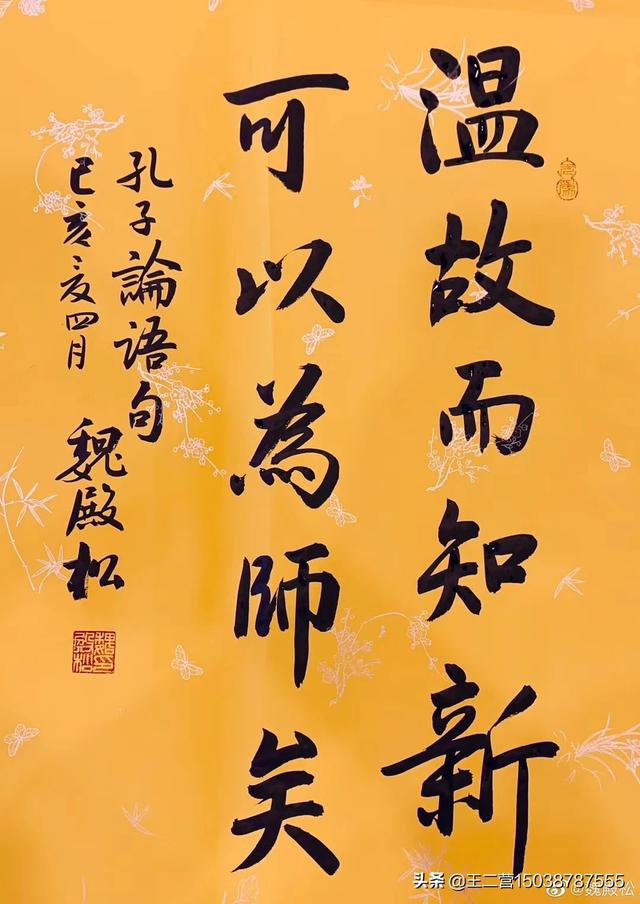 温故而知新
可以為師矣
孔子論語句
己亥夏四月
魏殿松
头条 @王二营15038787555
@魏殿松